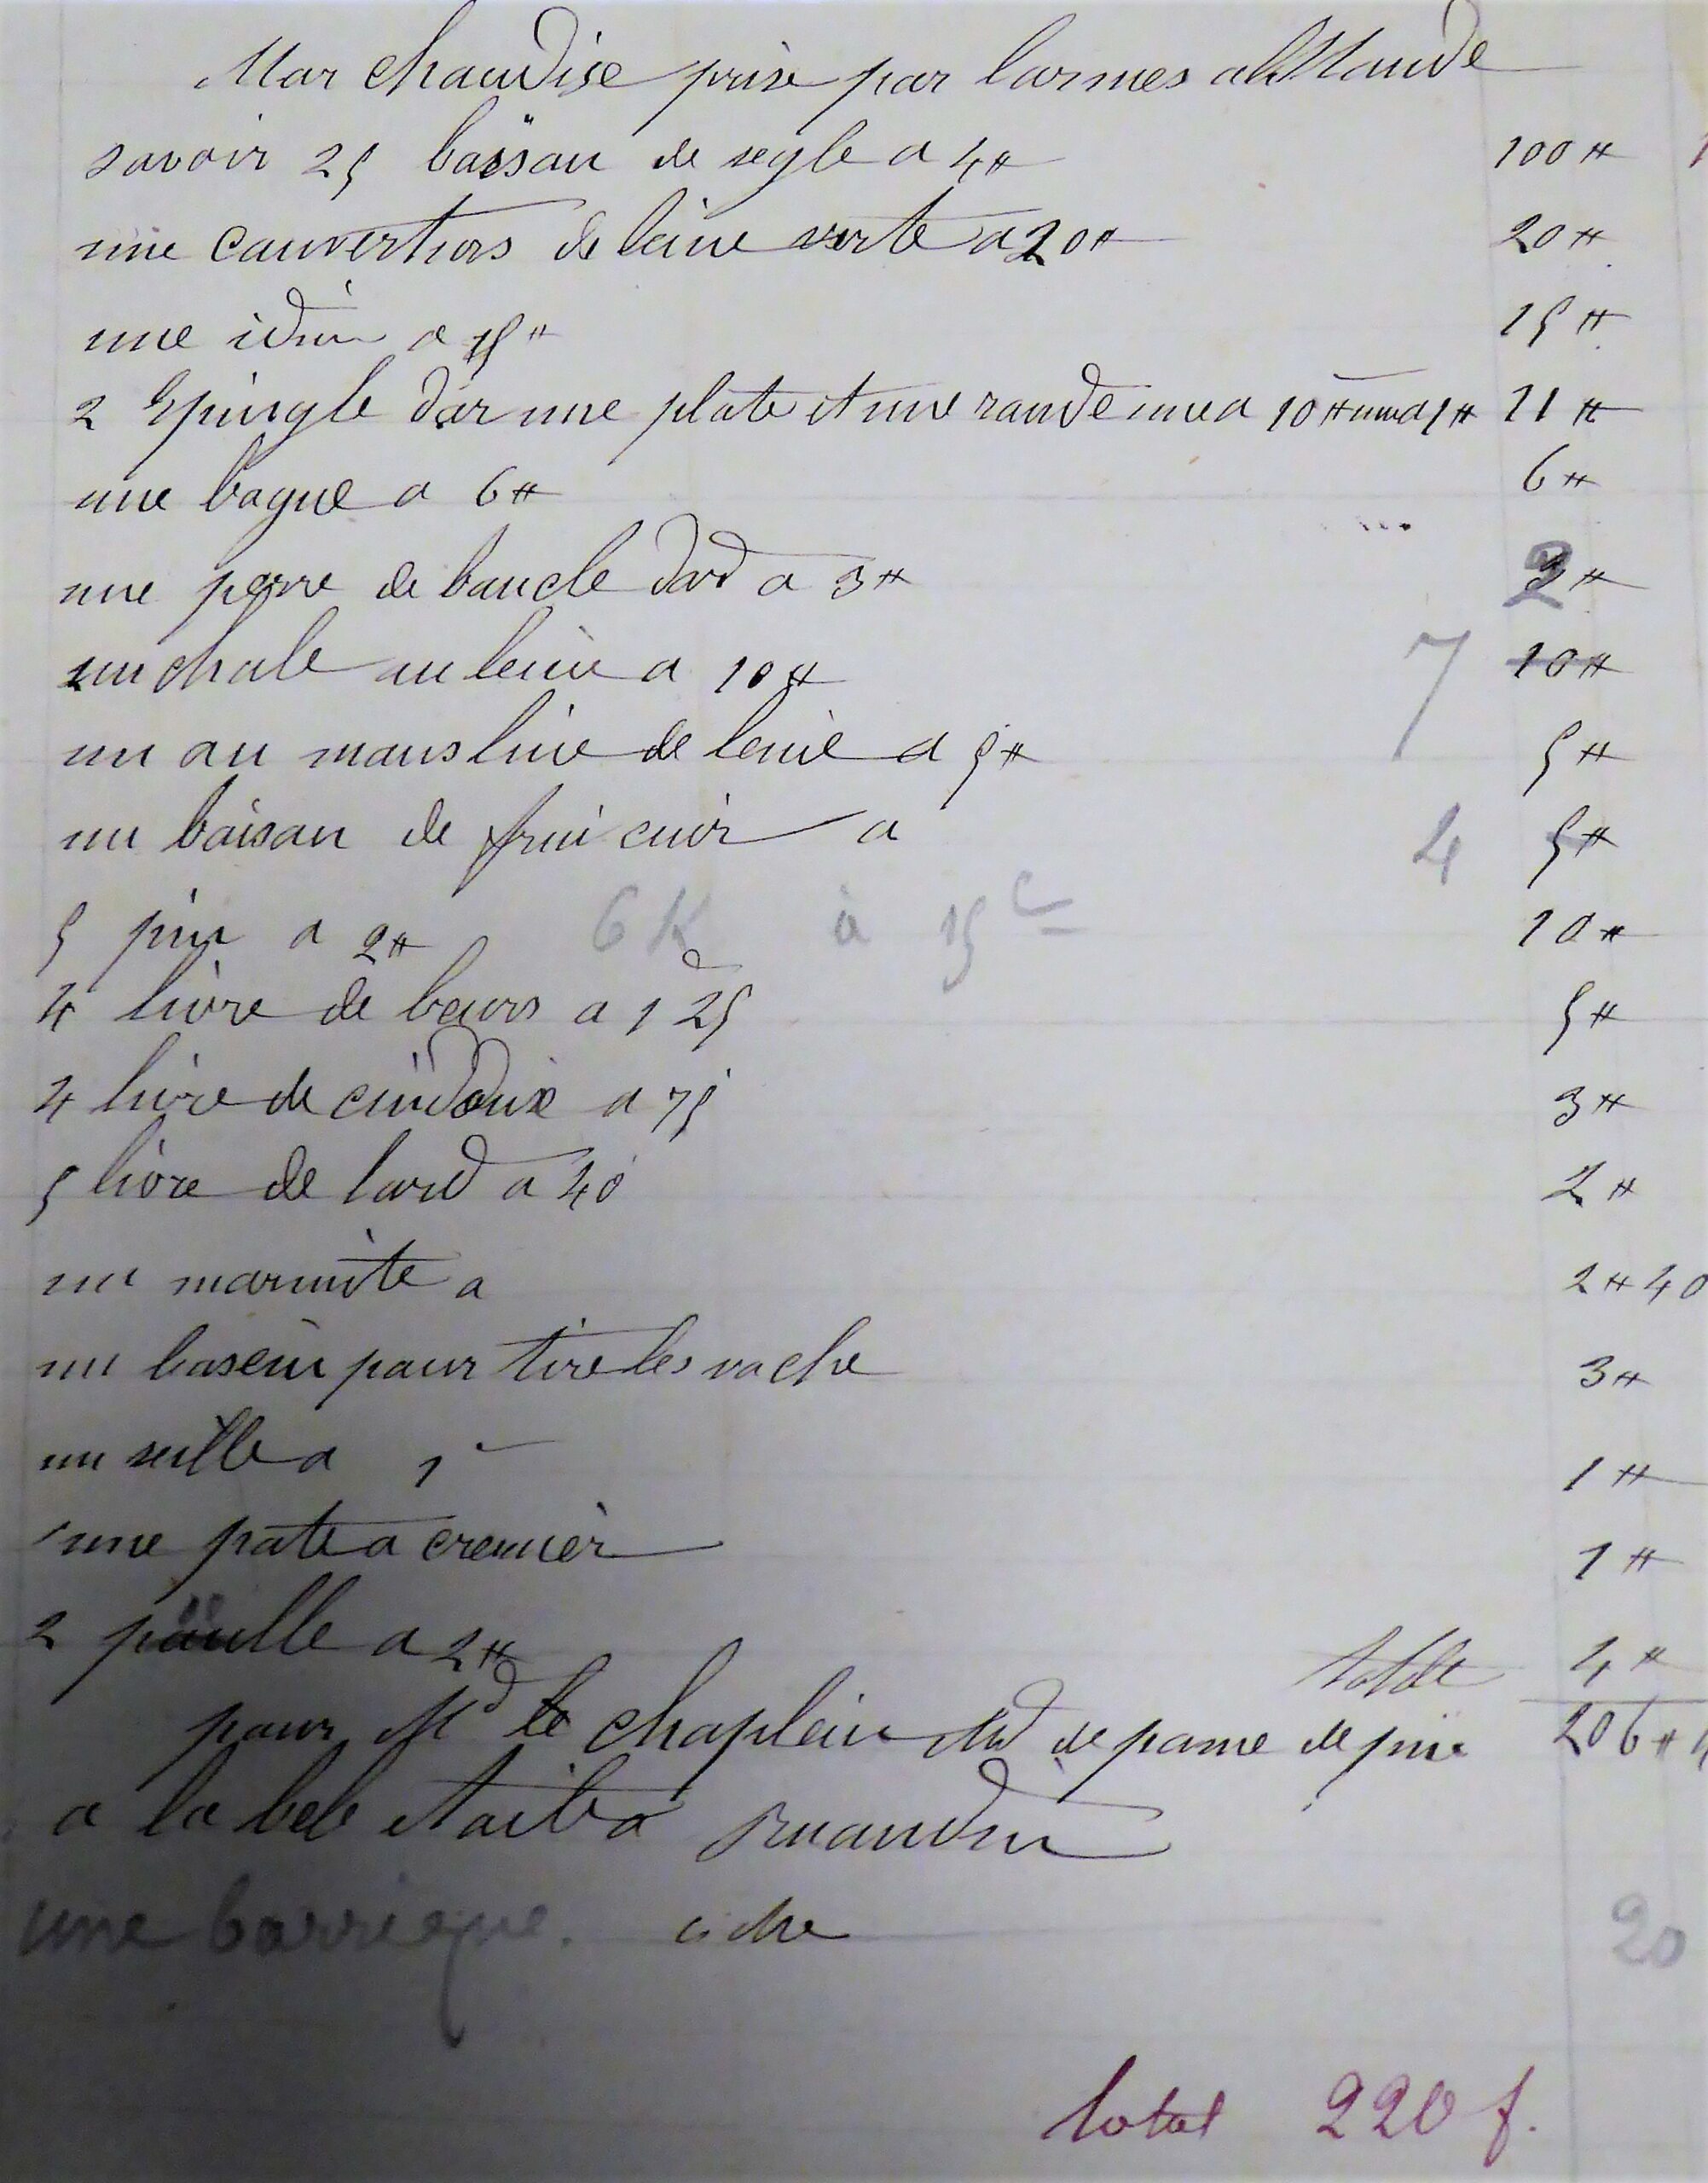 Marchandise prise par larmes allemande
savoir 25 baisau de segle a 4# 100#
une cauverturs de leine verte a 20# 20#
une idem a 15# 15#
2 Epingle dor une plate et une rande une a 10# une a 1# 11#
une bague a 6# 6#
une perre de baucle dord a 3# 2#
un chale en leine a 10# 7 10#
un au mausline de leine a 5# 5#
un baisau de a 4 5#
5 a 2# 6 K à 15c 10#
4 livre de beurs a 1 25 5#
4 livre de a 75 3#
5 livre de lard a 40 2#
un marmite a 2# 40
un basein paur tire les vache 3#
un seille a 1 1#
une pate a cremer 1#
2 a 2# 4#
totale
paur Md le chaplein Md de pame de pin 206#
a la bele Ruaudin
une barrique. cidre 20
total 220 f.